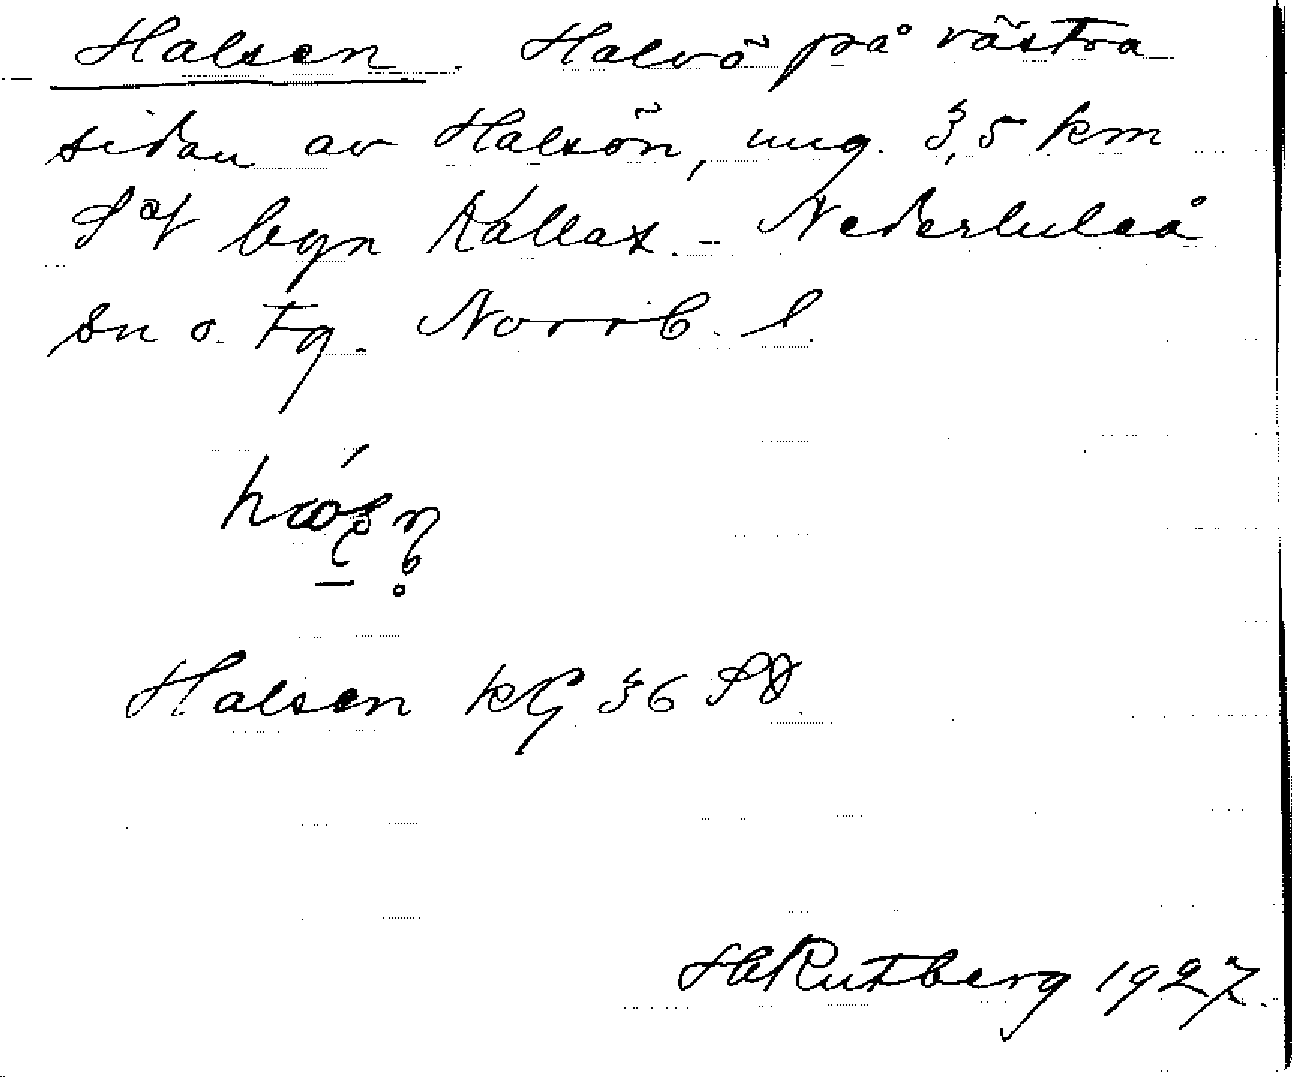 Halsen. Halvö på västra
sidan av Halsön, ung. 3,5 km
S av byn Kallax. - Nederluleå
sn o. tg. Norrb. l.
Halsen KG 36 SO
HRutberg 1927.